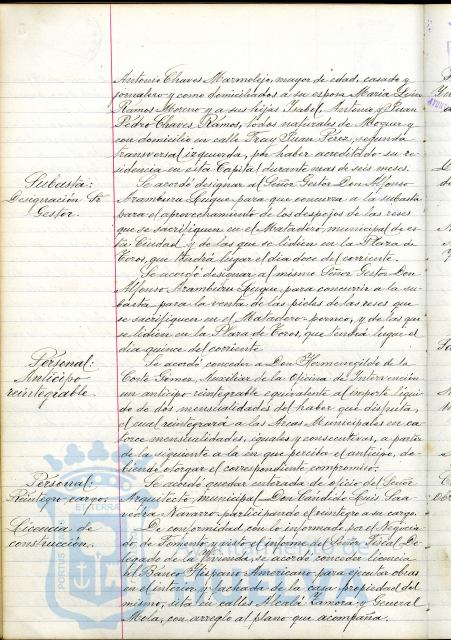 Antonio Chaves Marmolejo, mayor de edad, casado y
jornalero y como domiciliados a su esposa Maria Luisa
Ramos Moreno y a sus hijos Isabel, Antonio y Juan
Pedro Chaves Ramos, todos naturales de Moguer y
con domicilio en calle Fray Juan Pérez, segunda
transversal izquierda, por haber acreditado su re-
sidencia en esta Capital durante mas de seis meses.
Subasta:
Designación Sr
Gestor.
Se acordó designar al Señor Gestor Don Alfonso
Aramburu Luque para que concurra a la subasta
para el aprovechamiento de los despojos de las reses
que se sacrifiquen en el Matadero municipal de es-
ta Ciudad y de las que se lidien en la Plaza de
Toros, que tendrá lugar el dia doce del corriente.
Se acordó designar al mismo Señor Gestor Don
Alfonso Aramburu Luque, para concurrir a la su-
basta para la venta de las pieles de las reses que
se sacrifiquen en el Matadero y de las que
se lidien en la Plaza de Toros, que tendrá lugar el
dia quince del corriente
Personal:
Anticipo
reintegrable.
Se acordó conceder a Don Hermenegildo de la
Corte Gómez, Auxiliar de la Oficina de Intervención
un anticipo reintegrable equivalente al importe liqui-
do de dos mensualidades del haber que disfruta,
el cual reintegrará a las Arcas Municipales en ca-
torce mensualidades, iguales y consecutivas, a partir
de la siguiente a la en que perciba el anticipo, de-
biendo otorgar el correspondiente compromiso.
Personal:
Reintegro cargo.
Se acordó quedar enterada de oficio del Señor
Arquitecto municipal Don Candido Luis Saa-
vedra Navarro participando el reintegro a su cargo.
Licencia de
construcción.
De conformidad con lo informado por el Negocia-
do de Fomento y visto el informe del Señor Fiscal De-
legado de la Vivienda, se acordo conceder licencia
al Banco Hispano Americano para ejecutar obras
en el interior y fachada de la casa propiedad del
mismo, sita en calles Alcalá Zamora y General
Mola, con arreglo al plano que acompaña.
PORTUS
ET TERRÆ